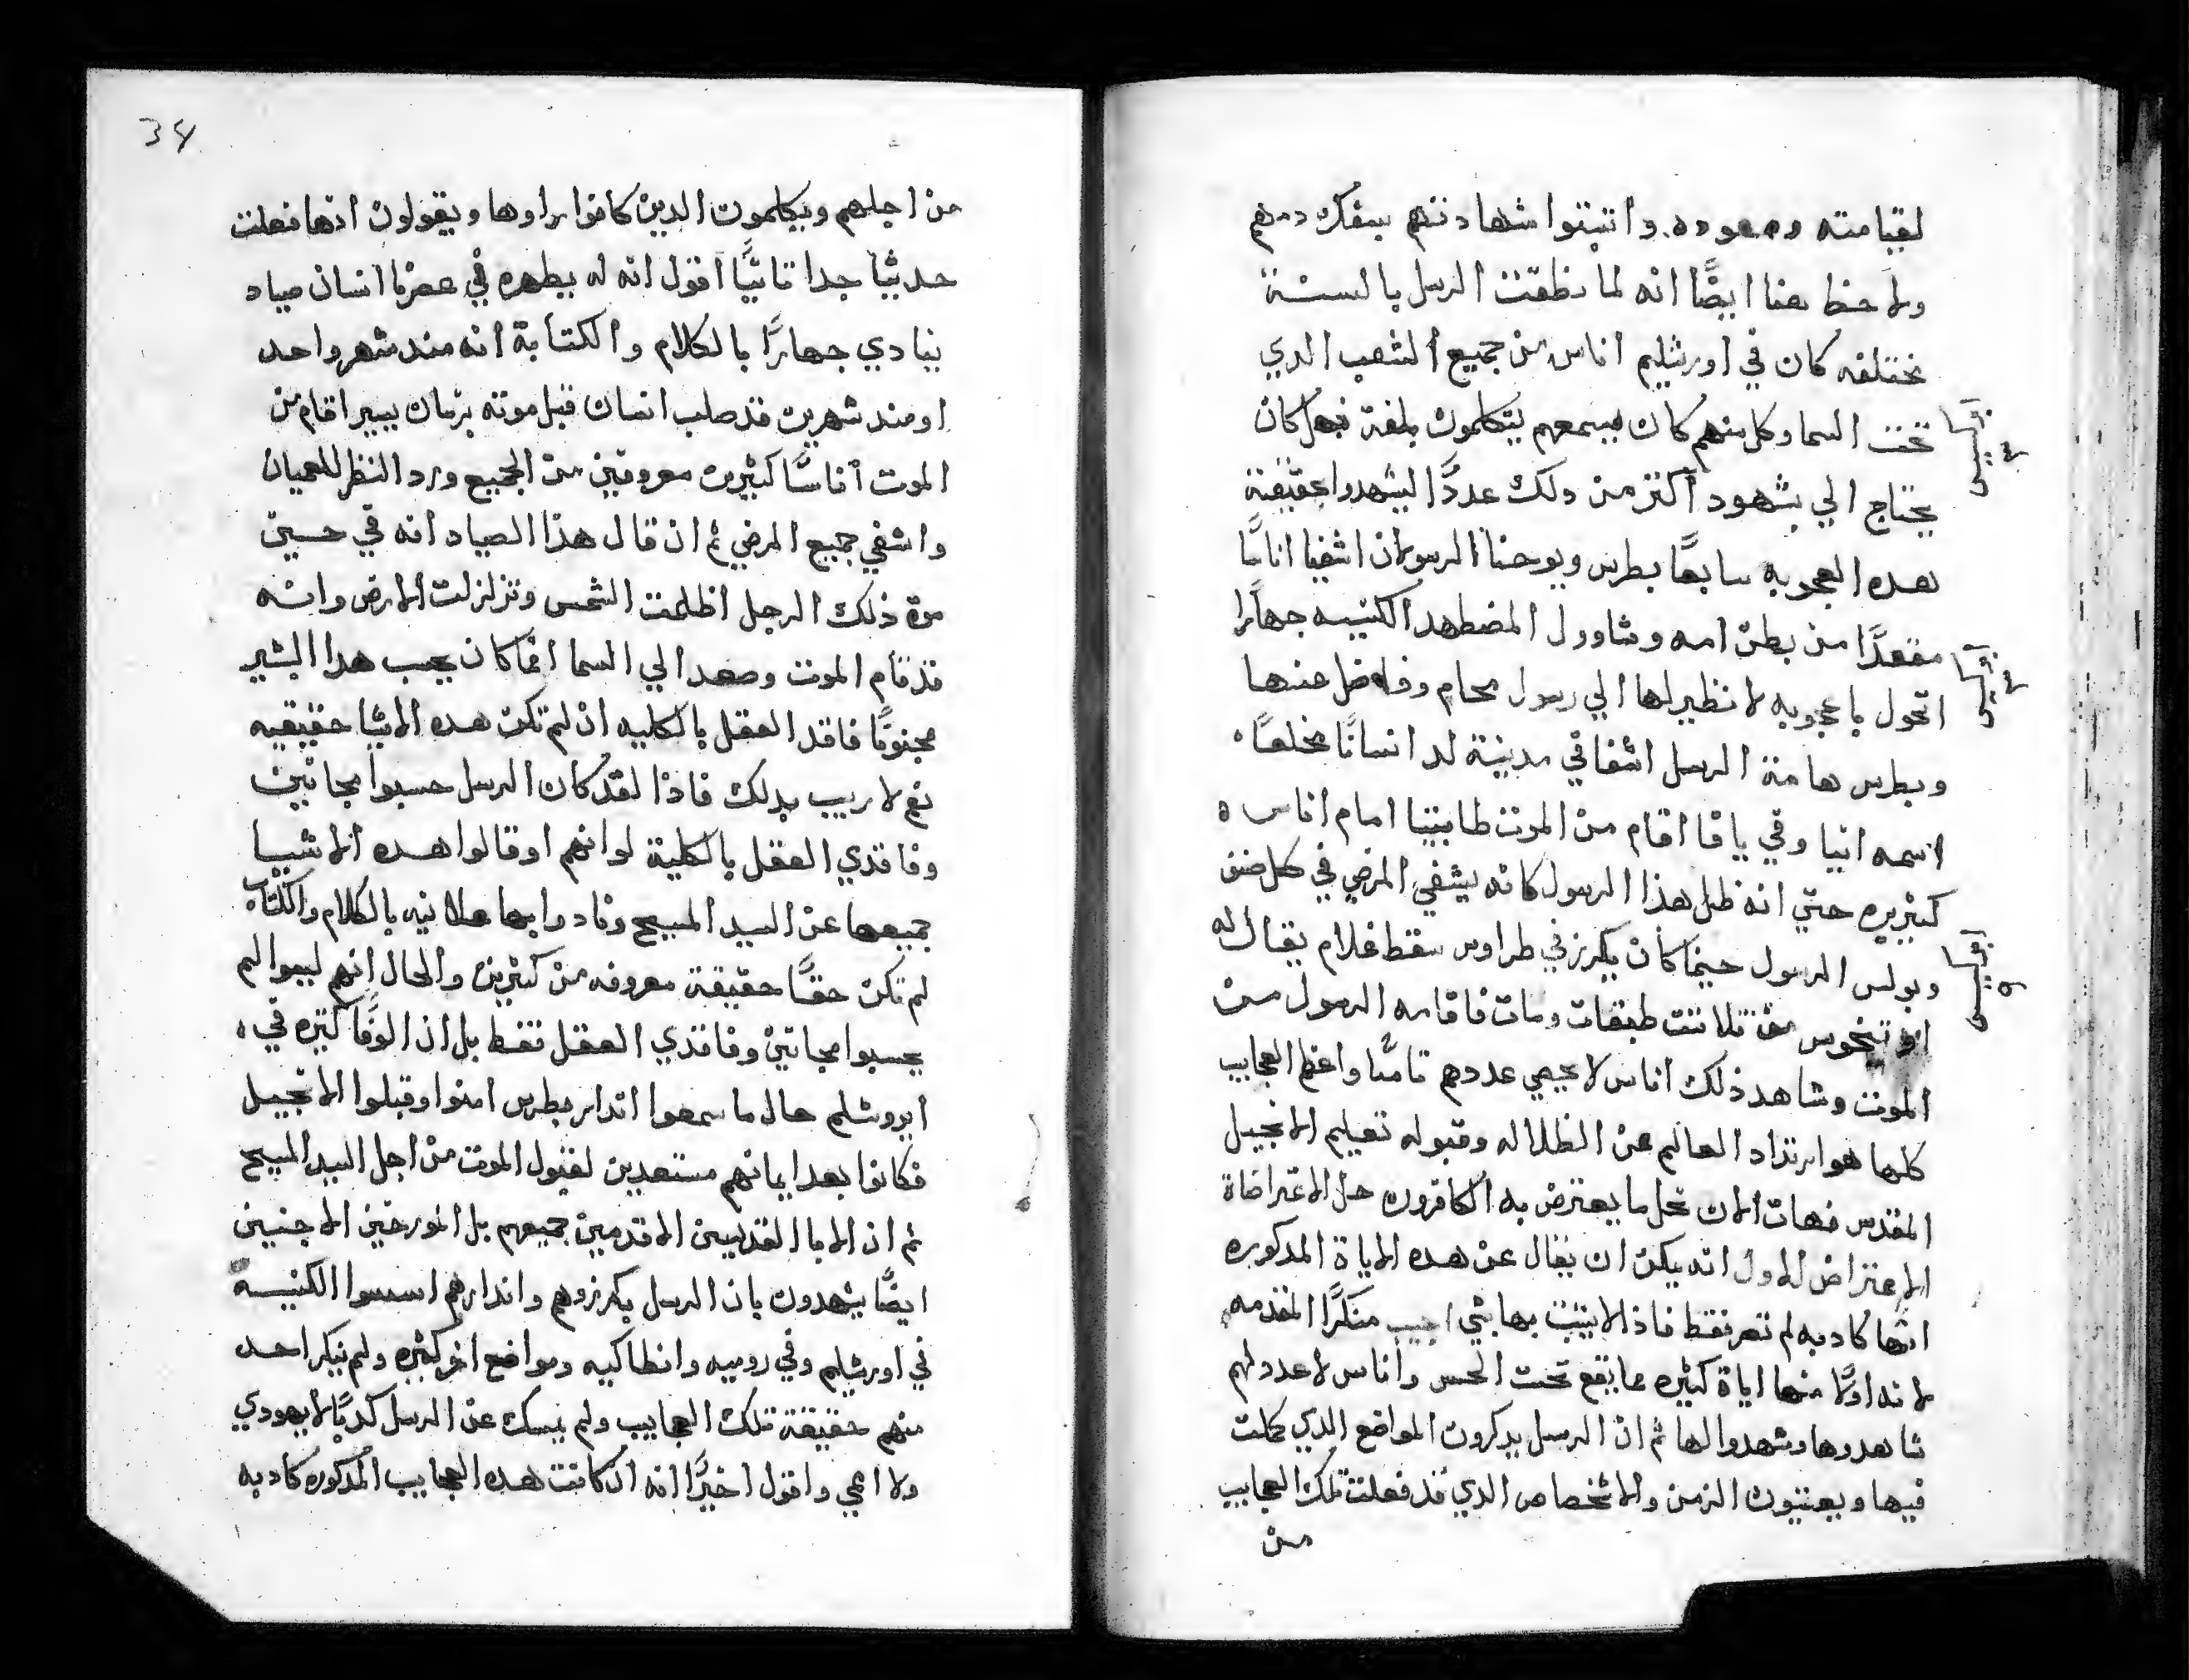 لقيامته وصعوده. واتبتوا شهادتهم بسفك دمهم
ولاحظ هنا ايضًا انه لما نطقت الرسل بالسنة
مختلفه كان في اورشليم اناس من جميع الشعب الدي
تحت السما وكل منهم كان يسمعهم يتكلمون بلغته فهل كان
يحتاج الي شهود اكتر من دلك عددًا ليشهدوا بحقيقة
هده العجوبه سابعًا بطرس ويوحنا الرسولان اشفيا اناسًا
مقعدًا من بطن امه وشاوول المضطهد الكنيسه جهارًا
اتحول باعجوبه لا نظير لها الي رسول محام وفاضل عنها
وبطرس هامة الرسل اشفا في مدينة لد انسانًا مخلعًا
اسمه انيا وفي يافا اقام من الموت طابيتا امام اناس
كثيريره حتي انه ظل هذا الرسول كانه يشفي المرضي في كل صنف
وبولس الرسول حينما كان يكرز في طراوس سقط غلام يقال له
افتيخوس من تلاتت طبقات ومات فاقامه الرسول من
الموت وشاهد ذلك اناس لا يحصي عددهم تامنًا واعظم العجايب
كلها هو ارتداد العالم عن الظلاله وقبوله تعليم الانجيل
المقدس فهات الان نحل ما يعترض به الكافرون حل الاعتراضاة
الاعتراض الاول انه يمكن ان يقال عن هده الاياة المدكوره
انها كادبه لم تصر فقط فاذا لا يتبت بها شي اجيب منكرًا المقدمه
لانه اولًا منها اياة كثيره مما يقع تحت الحس واناس لا عدد لهم
شاهدوها وشهدوا لها ثم ان الرسل يدكرون المواضع الدي كملت
فيها ويعينون الزمن والاشخاص الدي قد فعلت تلك العجايب
من
34
من اجلهم ويكلمون الدين كانوا يراوها ويقولون انها فعلت
حديثًا جدا تانيًا اقول انه له يظهره في عصرنا انسان صياد
ينادي جهارًا بالكلام والكتابة انه مند شهر واحد
او مند شهرين قد صلب انسان قبل موته بزمان يسير اقام من
الموت اناسًا كثيرين معروفين من الجميع ورد النظر للعميان
واشفي جميع المرضي ثم ان قال هذا الصياد انه في حسين
موة ذلك الرجل اظلمت الشمس وتزلزلت الارض وانه
قد قام الموت وصعد الي السما افما كان يحسب هدا البشير
مجنونًا فاقد العقل بالكليه ان لم تكن هده الاشيا حقيقيه
نعم لا ريب بدلك فاذا لقد كان الرسل حسبوا مجانين
وفاقدي العقل بالكلية لو انهم اوقالوا هده الاشيا
جميعها عن السيد المسيح ونادوا بها علانيه بالكلام والكتاب
لم تكن حقًا حقيقة معروفه من كثيرين والحال انهم ليسوا لم
يحسبوا مجانين وفاقدي العقل فقط بل ان الوفًا كتيره في
ايروشليم حال ما سمعوا اندار بطرس امنوا وقبلوا الانجيل
فكانوا بعد ايمانهم مستعدين لقبول الموت من اجل السيد المسيح
ثم ان الابا القديسين الاقدمين جميعهم بل المورخين الاجنبين
ايضًا يشهدون بان الرسل بكرزوهم واندارهم اسسوا الكنيسه
في اورشليم وفي روميه وانطاكيه ومواضع اخر كثيره ولم ينكر احد
منهم حقيقة تلك العجايب ولم يمسك عن الرسل كدبًا لا يهودي
ولا اممي واقول اخيرًا انه ان كانت هده العجايب المدكوره كادبه